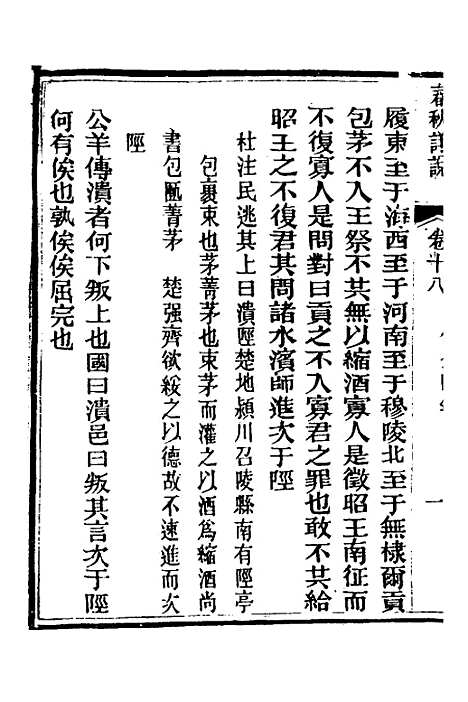 卷十八
履東至于海西至于河南至于穆陵北至于無棣爾貢
包茅不入王祭不共無以縮酒寡人是徵昭王南征而
不復寡人是問對曰貢之不入寡君之罪也敢不共給
昭王之不復君其問諸水濱師進次于陘
杜注民逃其上曰潰陘楚地潁川召陵縣南有陘亭
包裹束也茅菁茅也束茅而灌之以酒爲縮酒尚
書包匭菁茅　楚强齊欲綏之以德故不速進而次
陘
公羊傳潰者何下叛上也國曰潰邑曰叛其言次于陘
何有俟也孰俟俟屈完也